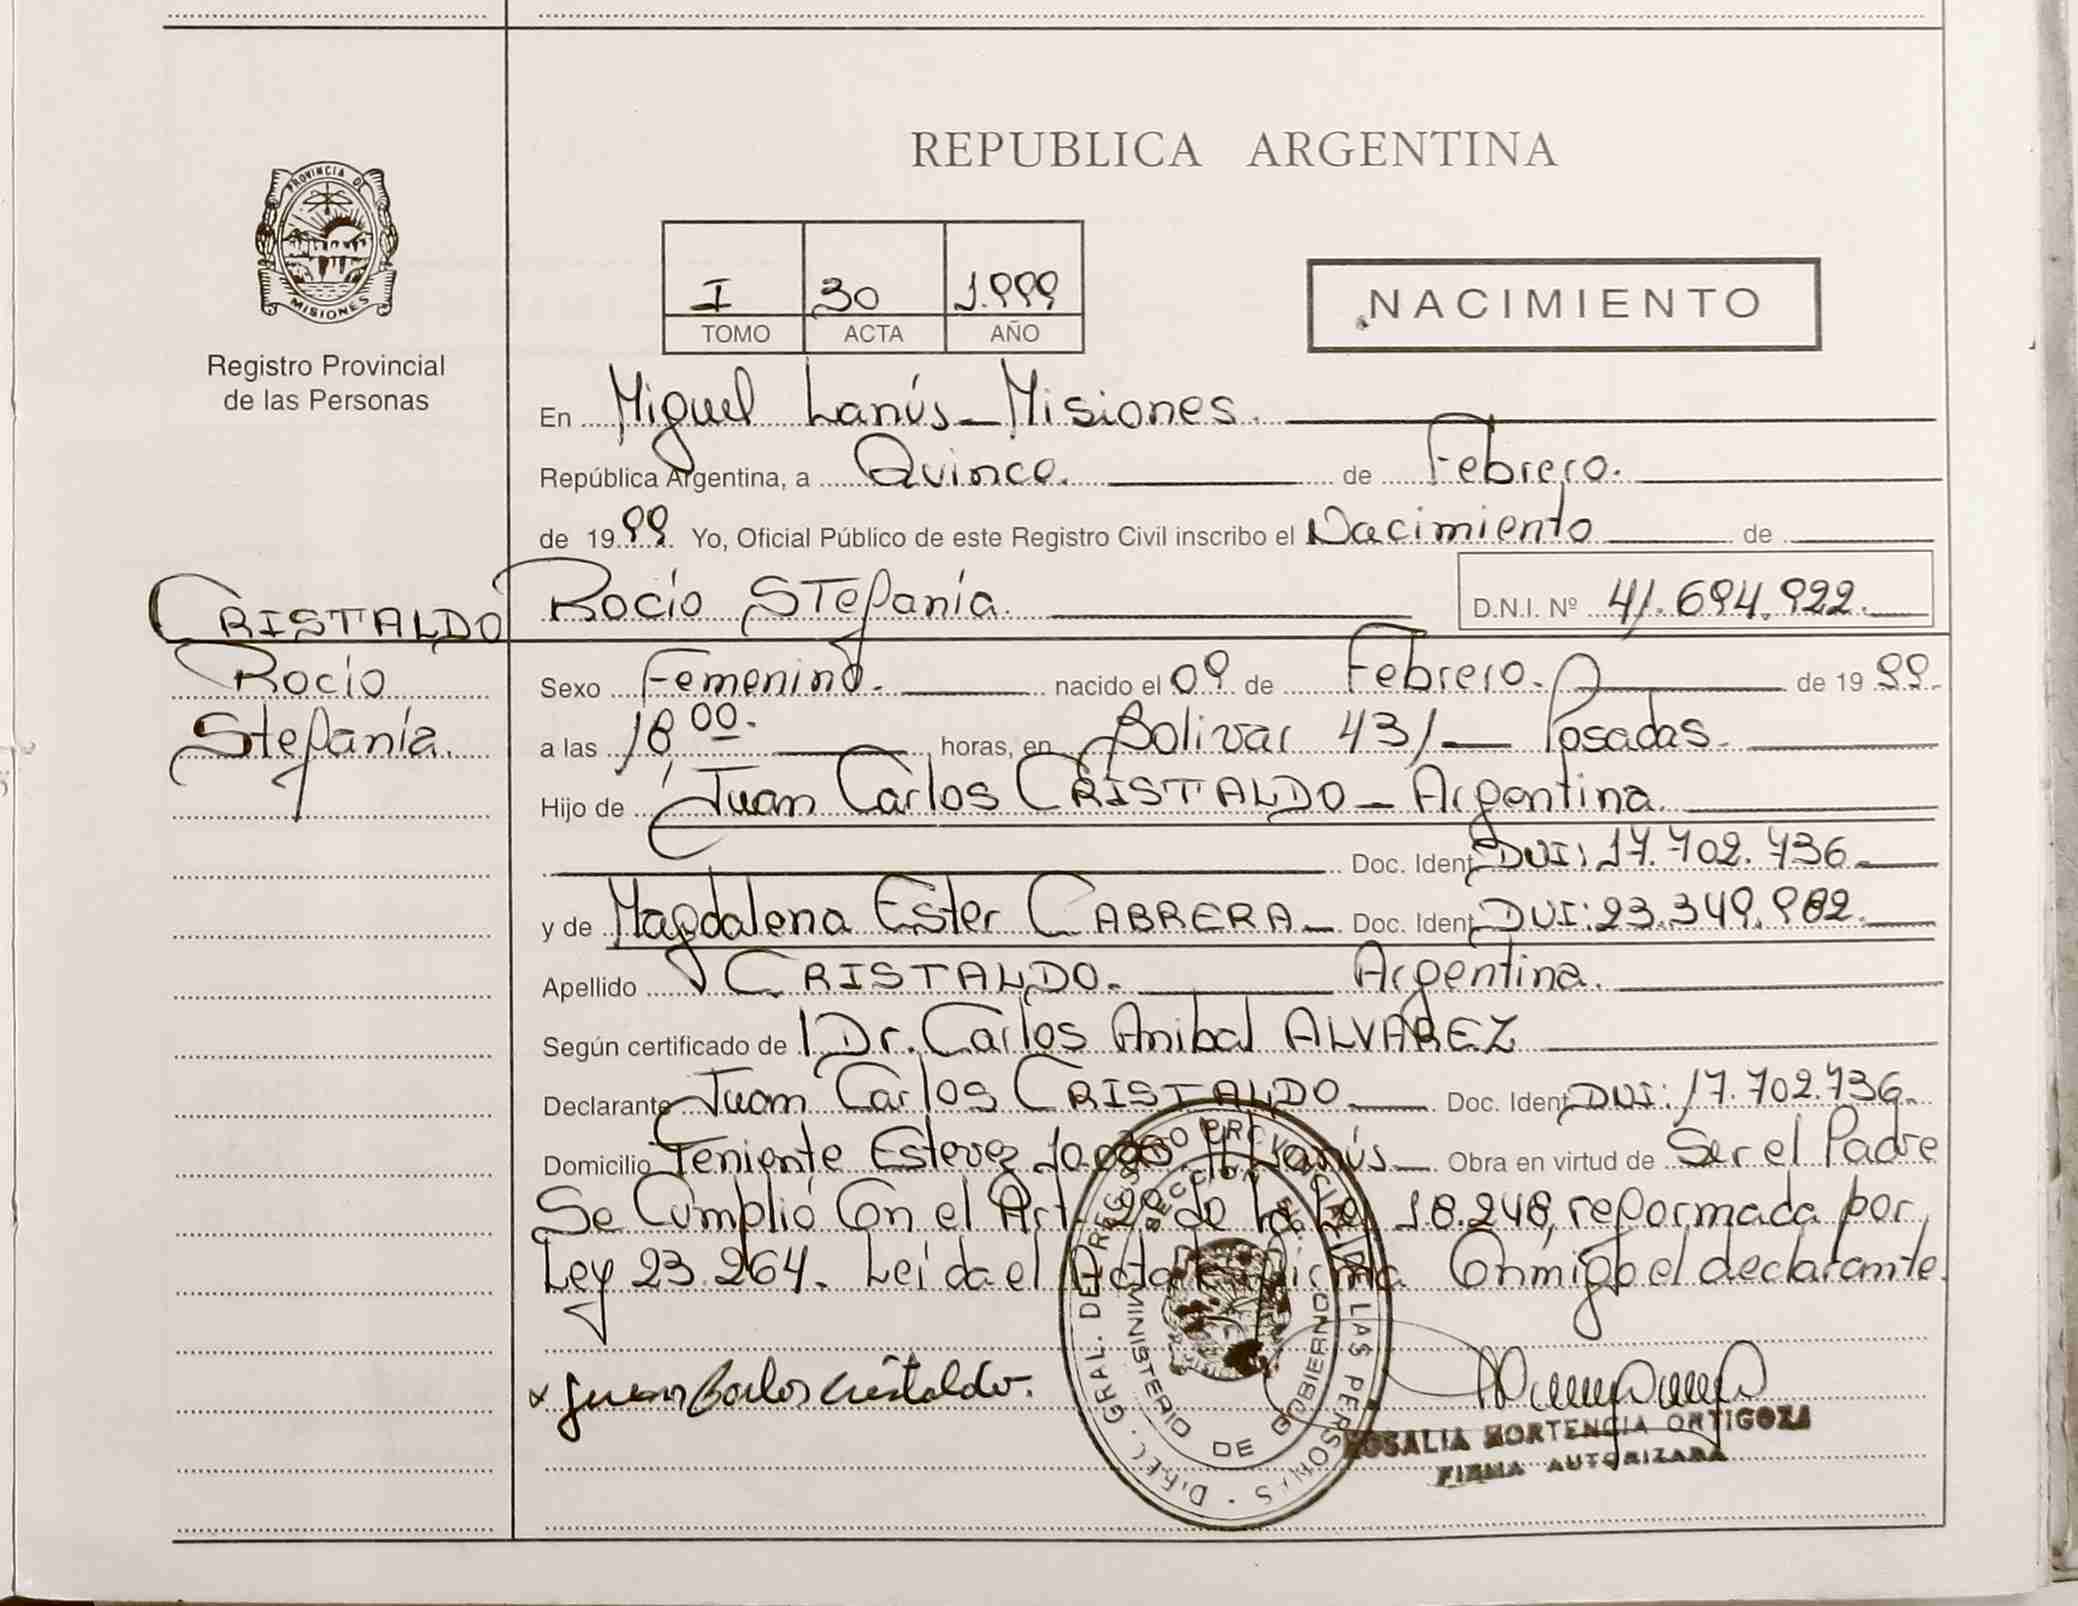 REPUBLICA ARGENTINA
PROVINCIA DE
MISIONES
Registro Provincial
de las Personas
I 30 1.999
TOMO ACTA AÑO
NACIMIENTO
En Miguel Lanús - Misiones.
República Argentina, a Quince. de Febrero.
de 1999. Yo, Oficial Público de este Registro Civil inscribo el Nacimiento de
CRISTALDO Rocío Stefanía. D.N.I. Nº 41.694.922.
Rocío
Stefanía.
Sexo Femenino. nacido el 09 de Febrero. de 1999.
a las 18 00. horas, en Bolivar 431 - Posadas.
Hijo de Juan Carlos CRISTALDO - Argentina.
Doc. Ident. DNI: 17.702.736
y de Magdalena Ester CABRERA - Doc. Ident. DNI: 23.349.982.
Apellido CRISTALDO. Argentina.
Según certificado de Dr. Carlos Anibal ALVAREZ
Declarante Juan Carlos CRISTALDO Doc. Ident. DNI: 17.702.736.
Domicilio Teniente Estevez Lanús - Obra en virtud de Ser el Padre
Se Cumplió Con el Art. 2º de La Ley 18.248, reformada por
Ley 23.264. Leída el Acta la Firma Conmigo el declarante.
x Juan Carlos Cristaldo.
DIREC. GRAL. DEL REGISTRO PROVINCIAL DE LAS PERSONAS
SECCION
MINISTERIO DE GOBIERNO
ROSALIA HORTENCIA ORTIGOZA
FIRMA AUTORIZADA